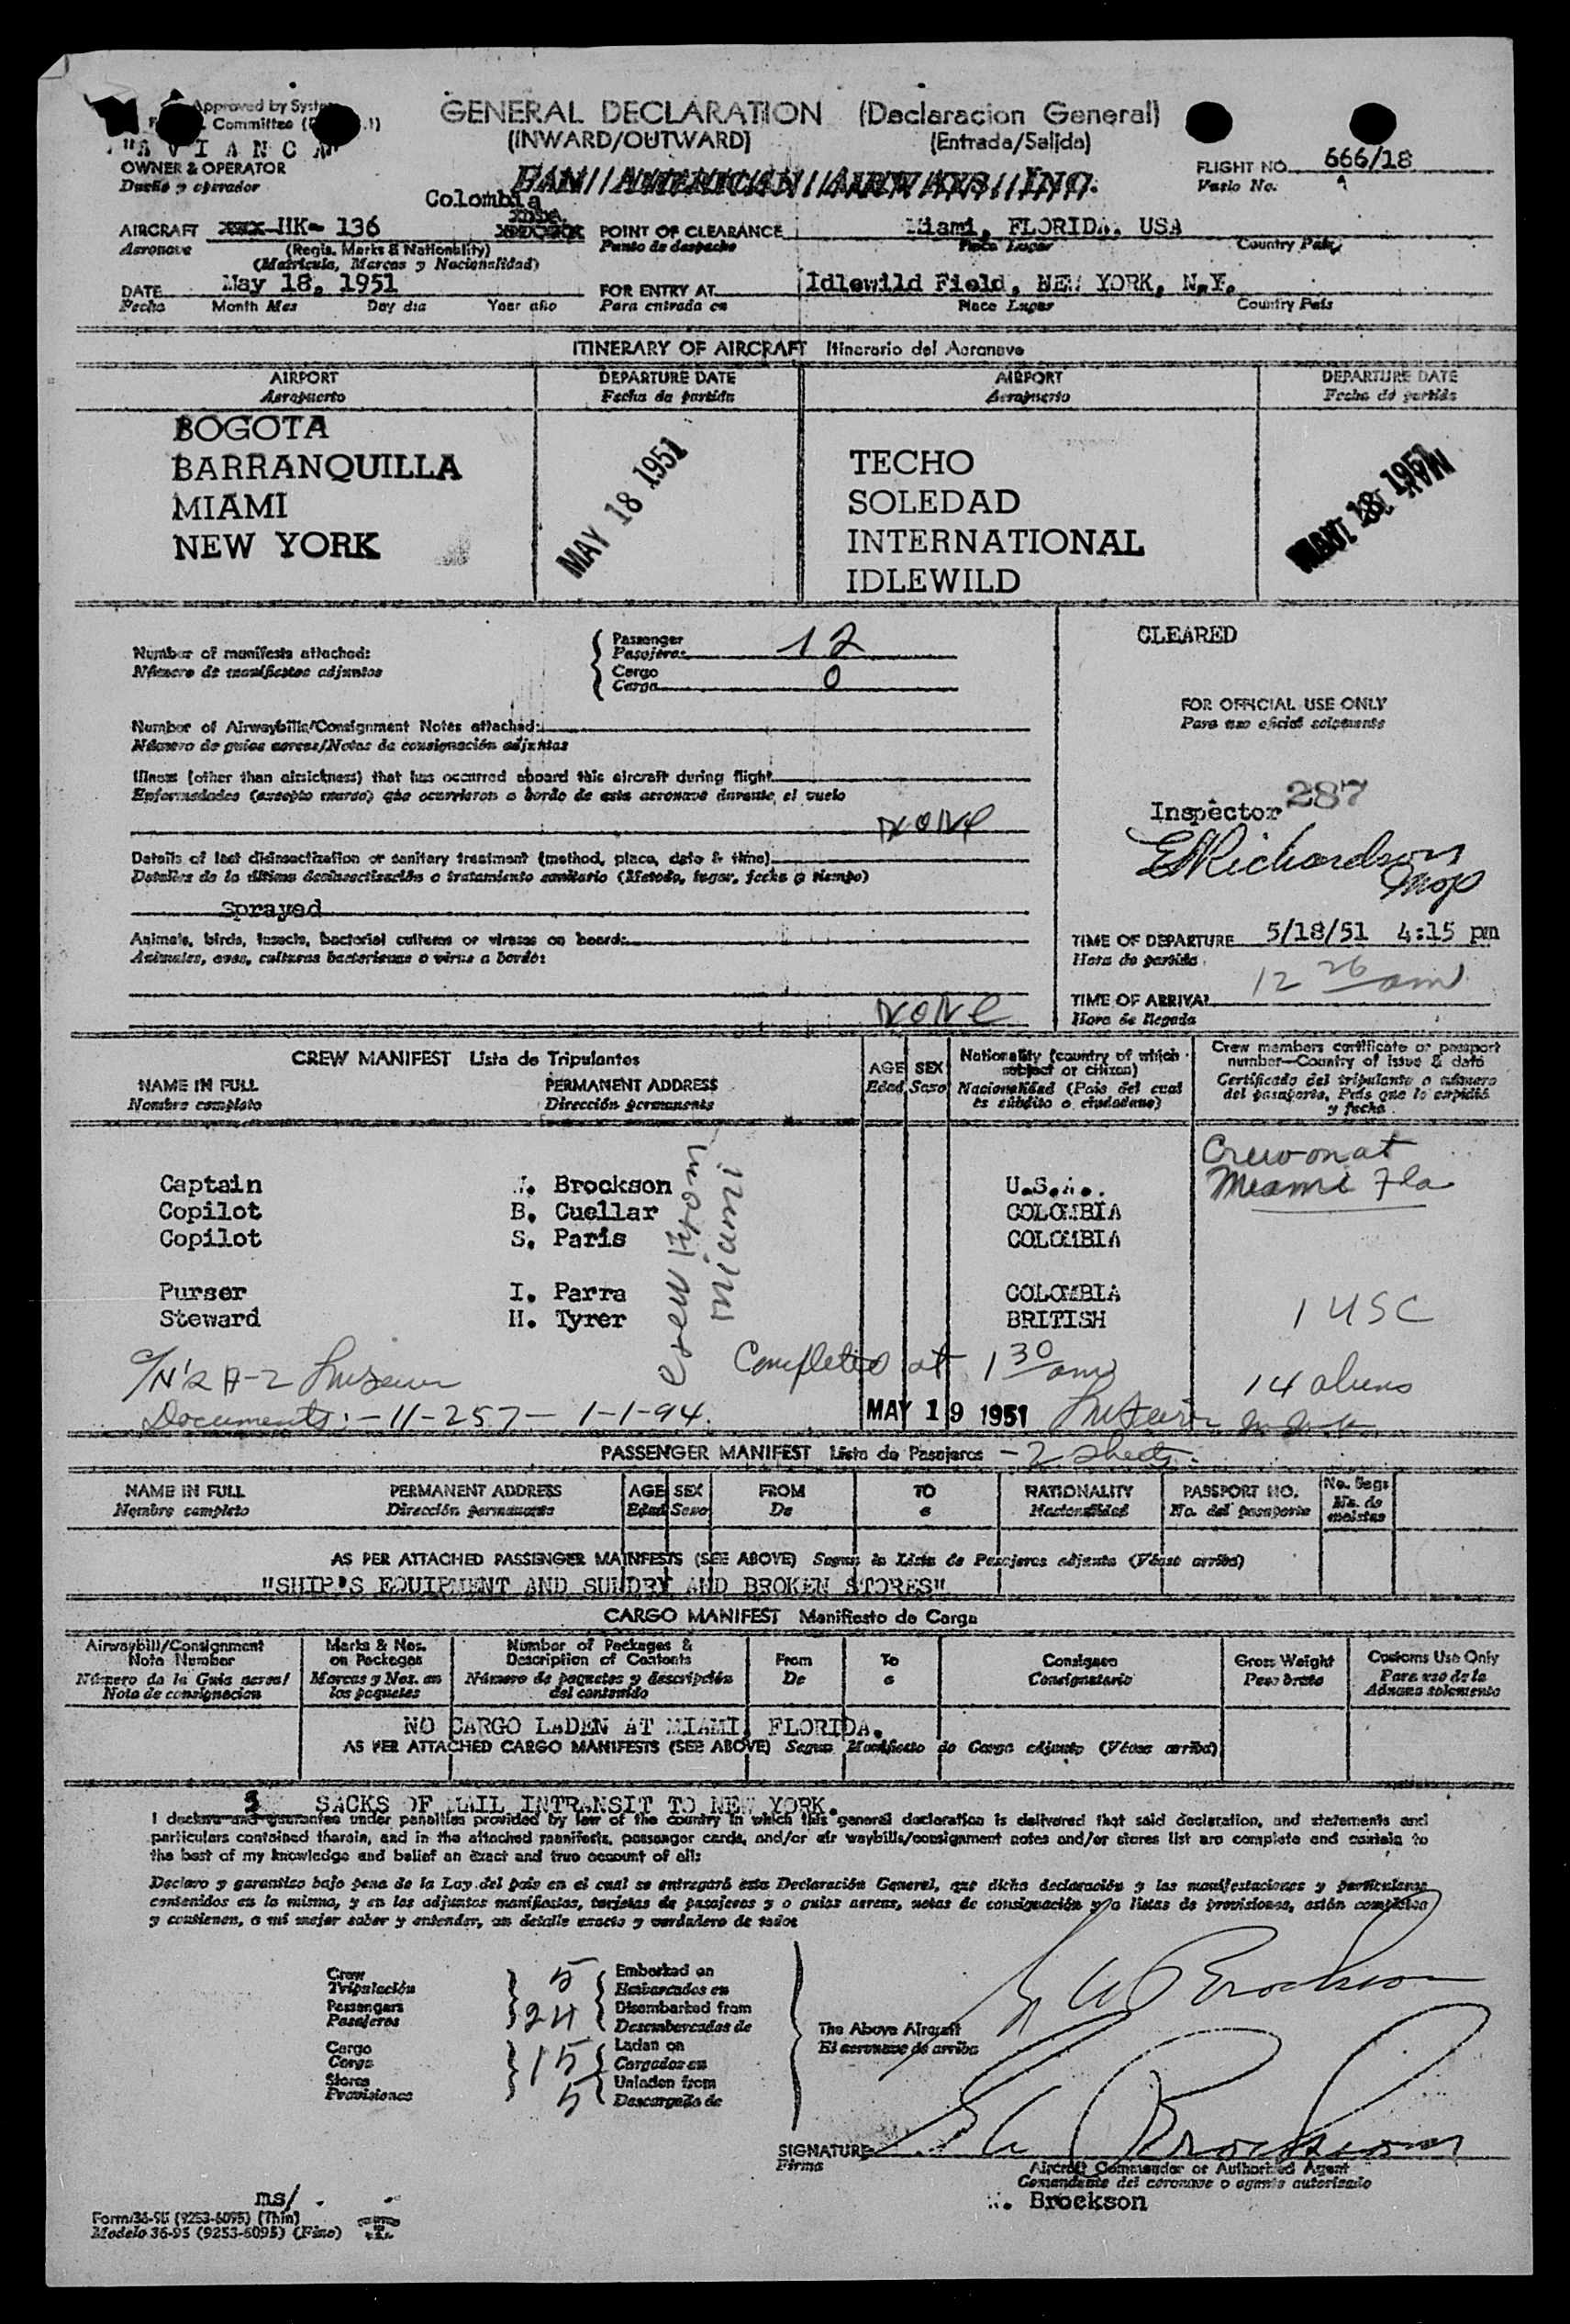 Approved by
Committee
GENERAL DECLARATION (Declaracion General)
(INWARD/OUTWARD) (Entrada/Salida)
"AVIANCA"
OWNER & OPERATOR
Dueño y operador
PAN AMERICAN AIRWAYS, INC.
FLIGHT NO. 666/18
Vuelo No.
Colombia
AIRCRAFT HK- 136
Aeronave
(Regis. Marks & Nationality)
(Matricula, Marcas y Nacionalidad)
POINT OF CLEARANCE Miami, FLORIDA, USA
Punto de despacho Place Lugar Country Pais
DATE May 18, 1951
Fecha Month Mes Day dia Year año
FOR ENTRY AT Idlewild Field, NEW YORK, N.Y.
Para entrada en Place Lugar Country Pais
ITINERARY OF AIRCRAFT Itinerario del Aeronave
AIRPORT DEPARTURE DATE AIRPORT DEPARTURE DATE
Aeropuerto Fecha de partida Aeropuerto Fecha de partida
BOGOTA
BARRANQUILLA
MIAMI
NEW YORK
MAY 18 1951
TECHO
SOLEDAD
INTERNATIONAL
IDLEWILD
MAY 18 1951
Number of manifests attached:
Número de manifiestos adjuntos
Passenger
Pasajeros 12
Cargo
Carga 0
Number of Airwaybills/Consignment Notes attached:
Número de guias aereas/Notas de consignación adjuntas
Illness (other than airsickness) that has occurred aboard this aircraft during flight
Enfermedades (excepto mareo) que ocurrieron a bordo de esta aeronave durante el vuelo
NONE
Details of last disinsectization or sanitary treatment (method, place, date & time)
Detalles de la última desinsectización o tratamiento sanitario (Metodo, lugar, fecha y tiempo)
Sprayed
Animals, birds, insects, bacterial cultures or viruses on board:
Animales, aves, culturas bacterianas o virus a bordo:
NONE
CLEARED
FOR OFFICIAL USE ONLY
Para uso oficial solamente
Inspector 287
Richardson
TIME OF DEPARTURE 5/18/51 4:15 pm
Hora de partida
TIME OF ARRIVAL 12 26 am
Hora de llegada
CREW MANIFEST Lista de Tripulantes
NAME IN FULL PERMANENT ADDRESS
Nombre completo Dirección permanente
AGE SEX
Edad Sexo
Nationality (country of which subject or citizen)
Nacionalidad (Pais del cual es súbdito o ciudadano)
Crew members certificate or passport number—Country of issue & date
Certificado del tripulante o número del pasaporte, País que lo expidió y fecha
Crew on at
Miami Fla
Captain Brockson U.S.A.
Copilot B. Cuellar COLOMBIA
Copilot S. Paris COLOMBIA
Purser I. Parra COLOMBIA
Steward H. Tyrer BRITISH
crew from
miami
1 USC
14 aliens
Completed at 1 30 am
Documents:-11-257- 1-1-94.
MAY 19 1951
PASSENGER MANIFEST Lista de Pasajeros - 2 sheets.
NAME IN FULL PERMANENT ADDRESS AGE SEX FROM TO NATIONALITY PASSPORT NO. No. Bags
Nombre completo Dirección permanente Edad Sexo De a Nacionalidad No. del pasaporte No. de maletas
AS PER ATTACHED PASSENGER MAINFESTS (SEE ABOVE) Segun la Lista de Pasajeros adjunta (Véase arriba)
"SHIP'S EQUIPMENT AND SUNDRY AND BROKEN STORES"
CARGO MANIFEST Manifiesto de Carga
Airwaybill/Consignment Note Number
Número de la Guia aerea/ Nota de consignacion
Marks & Nos. on Packages
Marcas y Nos. en los paquetes
Number of Packages & Description of Contents
Número de paquetes y descripción del contenido
From
De
To
a
Consignee
Consignatario
Gross Weight
Peso bruto
Customs Use Only
Para uso de la Aduana solamente
NO CARGO LADEN AT MIAMI, FLORIDA.
AS PER ATTACHED CARGO MANIFESTS (SEE ABOVE) Segun Manifiesto de Carga adjunto (Véase arriba)
3 SACKS OF MAIL INTRANSIT TO NEW YORK.
I declare and guarantee under penalties provided by law of the country in which this general declaration is delivered that said declaration, and statements and
particulars contained therein, and in the attached manifests, passenger cards, and/or air waybills/consignment notes and/or stores list are complete and contain to
the best of my knowledge and belief an exact and true account of all:
Declaro y garantizo bajo pena de la Ley del pais en el cual se entregará esta Declaración General, que dicha declaración y las manifestaciones y particulares
contenidos en la misma, y en los adjuntos manifiestos, tarjetas de pasajeros y o guias aereas, notas de consignación y/o listas de provisiones, están completos
y contienen, a mi mejor saber y entender, un detalle exacto y verdadero de todos
Crew
Tripulación 5
Passengers
Pasajeros 24
Cargo
Carga 15
Stores
Provisiones 5
Embarked on
Embarcados en
Disembarked from
Desembarcados de
Laden on
Cargados en
Unladen from
Descargada de
The Above Aircraft
El aeronave de arriba
Brockson
SIGNATURE Brockson
Firma
Aircraft Commander or Authorized Agent
Comandante del aeronave o agente autorizado
Brockson
ms/
Form/36-95 (9253-6095) (Thin)
Modelo 36-95 (9253-6095) (Fino)